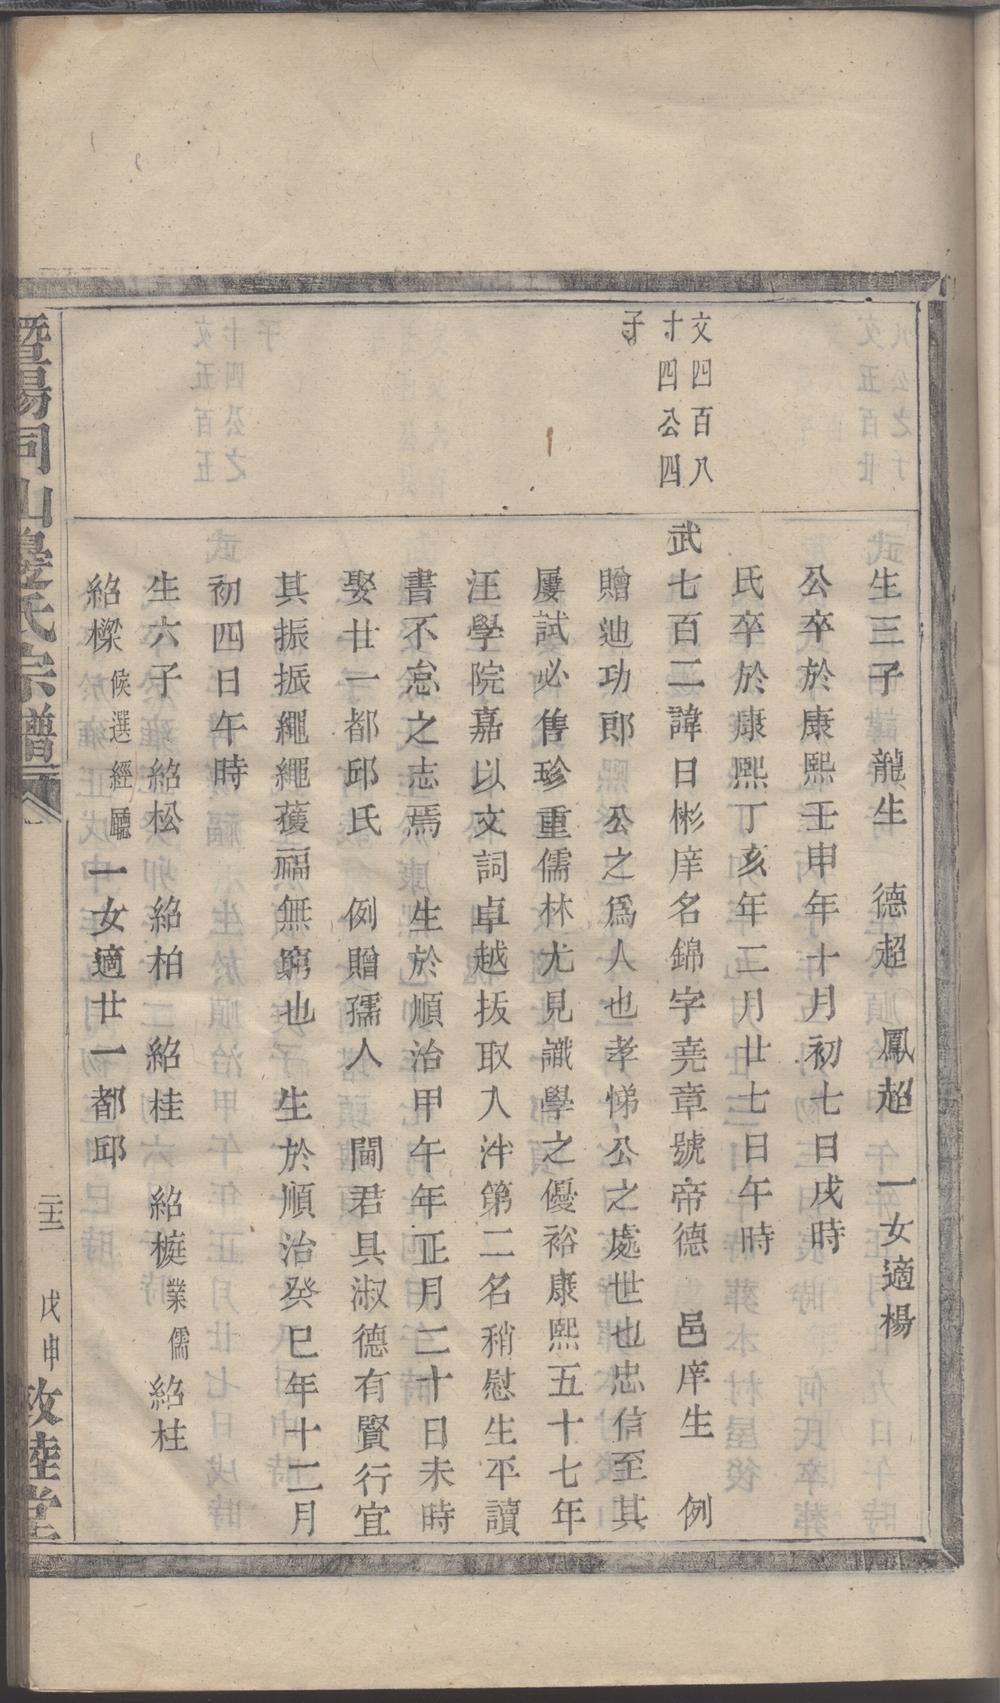 文四百八
十四公四
子
生三子 龍生 德超 鳳超 一女適楊
公卒於康熙壬申年十月初七日戌時
氏卒於康熙丁亥年二月廿七日午時
武七百二諱日彬庠名錦字堯章號帝德 邑庠生 例
贈迪功郎 公之爲人也孝悌公之處世也忠信至其
屢試必售珍重儒林尤見識學之優裕康熙五十七年
汪學院嘉以文詞卓越拔取入泮第二名稍慰生平讀
書不怠之志焉 生於順治甲午年正月二十日未時
娶廿一都邱氏 例贈孺人 閫君具淑德有賢行宜
其振振繩繩獲福無窮也 生於順治癸巳年十二月
初四日午時
生六子 紹松 紹柏 紹桂 紹榳業儒 紹柱
紹樑候選經廳 一女適廿一都邱
暨陽同山邊氏宗譜
二十二 戊申 敦睦堂